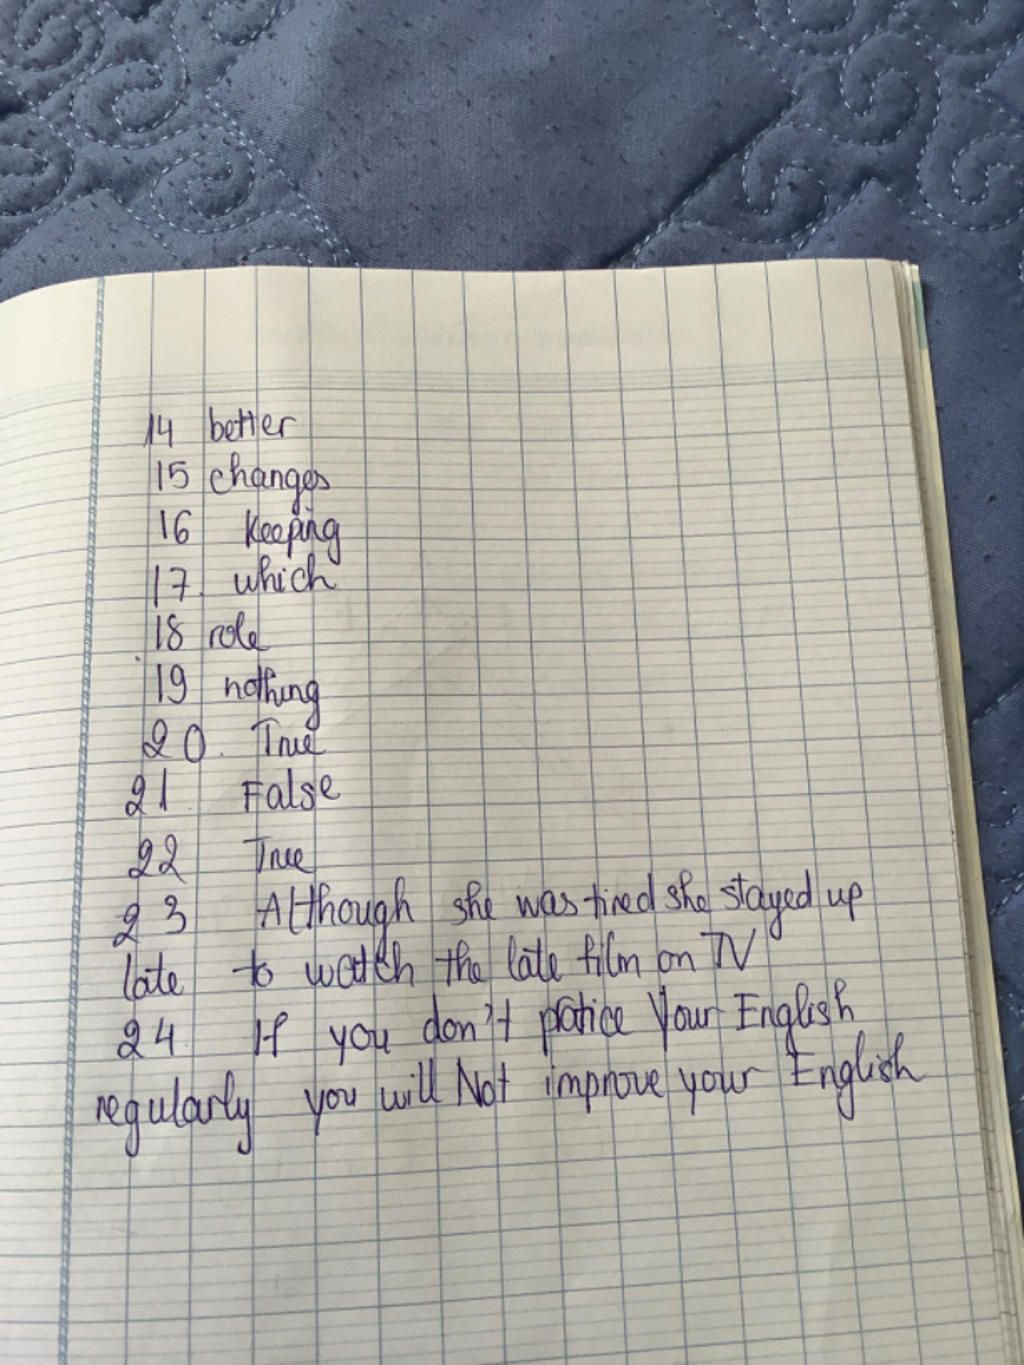 14 better
15 changes
16 Keeping
17. which
18 role
19 nothing
20. True
21 False
22 True
23 Although she was tired she stayed up
late to watch the late film on TV
24. If you don't patice Your English
regularly you will Not improve your English